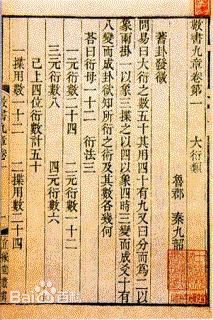 數書九章卷第一
大衍類
魯郡 秦九韶
蓍卦發微
問易曰大衍之數五十其用四十有九又曰分而為二以
象兩掛一以象三揲之以四以象四時三變而成爻十有
八變而成卦欲知所衍之術及其數各幾何
荅曰衍母一十二 衍法三
一元衍數二十四 二元衍數一十二
三元衍數八 四元衍數六
已上四位衍數計五十
一揲用數一十二 二揲用數二十四
數書九章卷一
一
宜稼堂叢書
Bai 百科